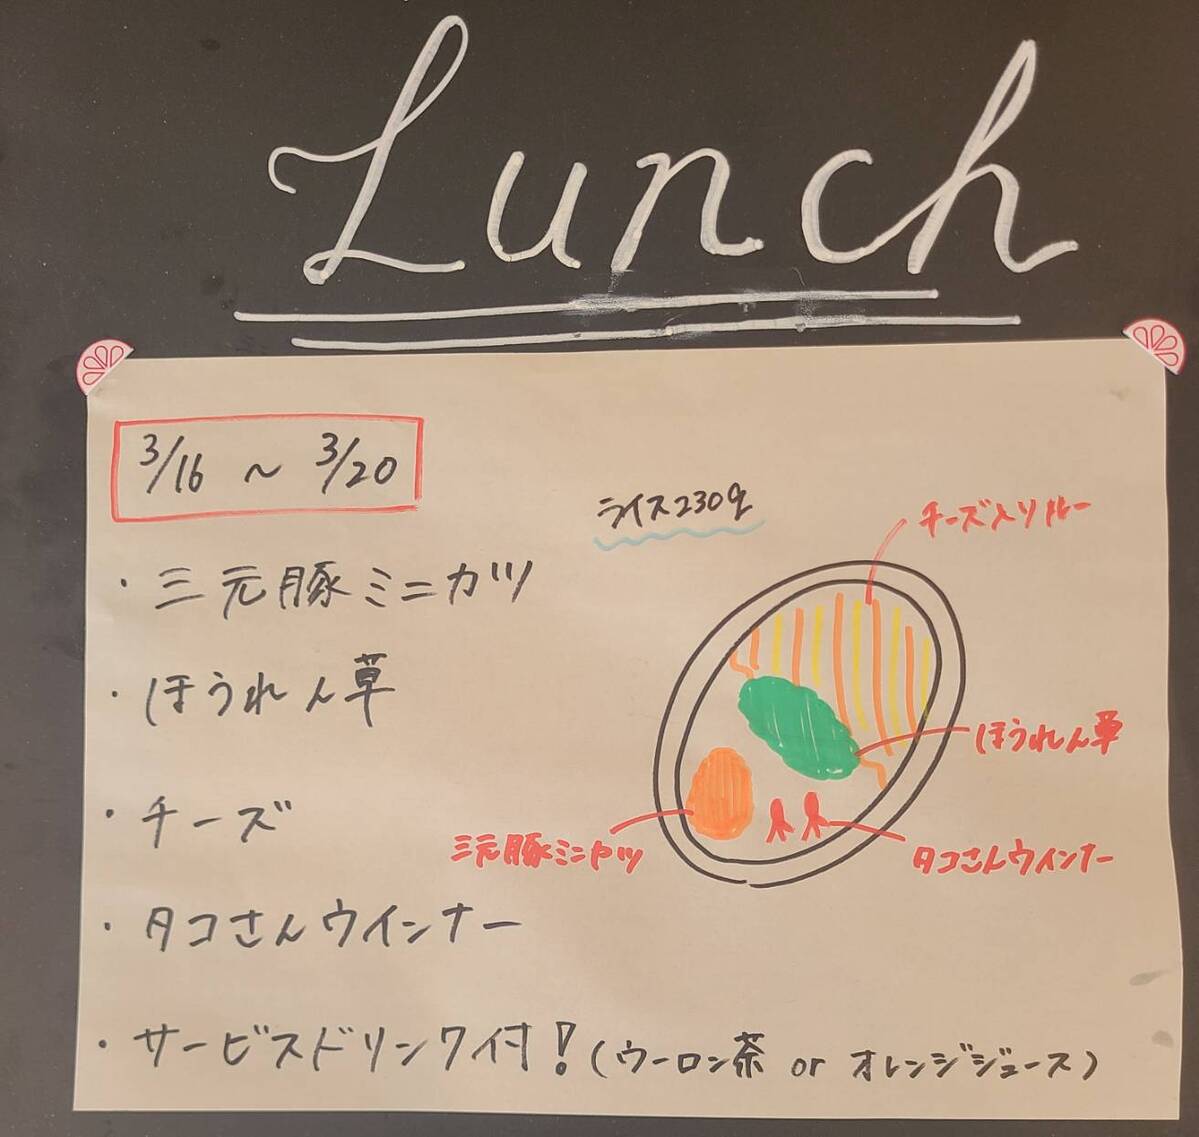 Lunch
3/16 ~ 3/20
ライス230g
チーズ入りルー
・三元豚ミニカツ
・ほうれん草
ほうれん草
・チーズ
三元豚ミニカツ
タコさんウインナー
・タコさんウインナー
・サービスドリンク付!(ウーロン茶 or オレンジジュース)